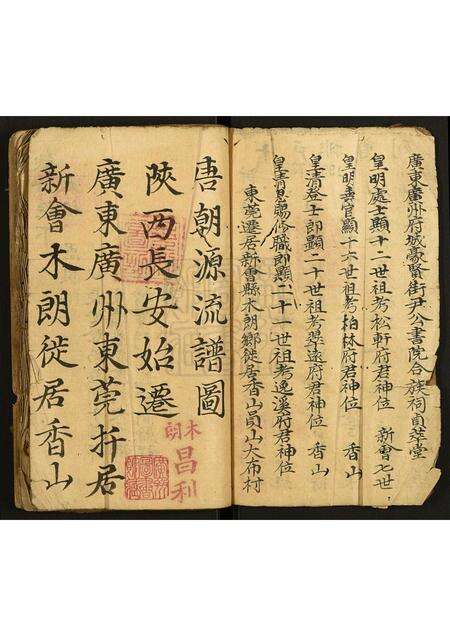 廣東廣州府城豪賢街尹公書院合族祠貞萃堂
皇明處士顯十二世祖考松軒府君神位 新會七世
皇明壽官顯十六世祖考柏林府君神位 香山
皇清登士郎顯二十世祖考翠遠府君神位 香山
皇清恩賜修職郎顯二十一世祖考逸溪府君神位
東莞遷居新會縣木朗鄉徙居香山員山大布村
唐朝源流譜圖
陝西長安始遷
廣東廣州東莞扦居
新會木朗徙居香山
木朗
昌利